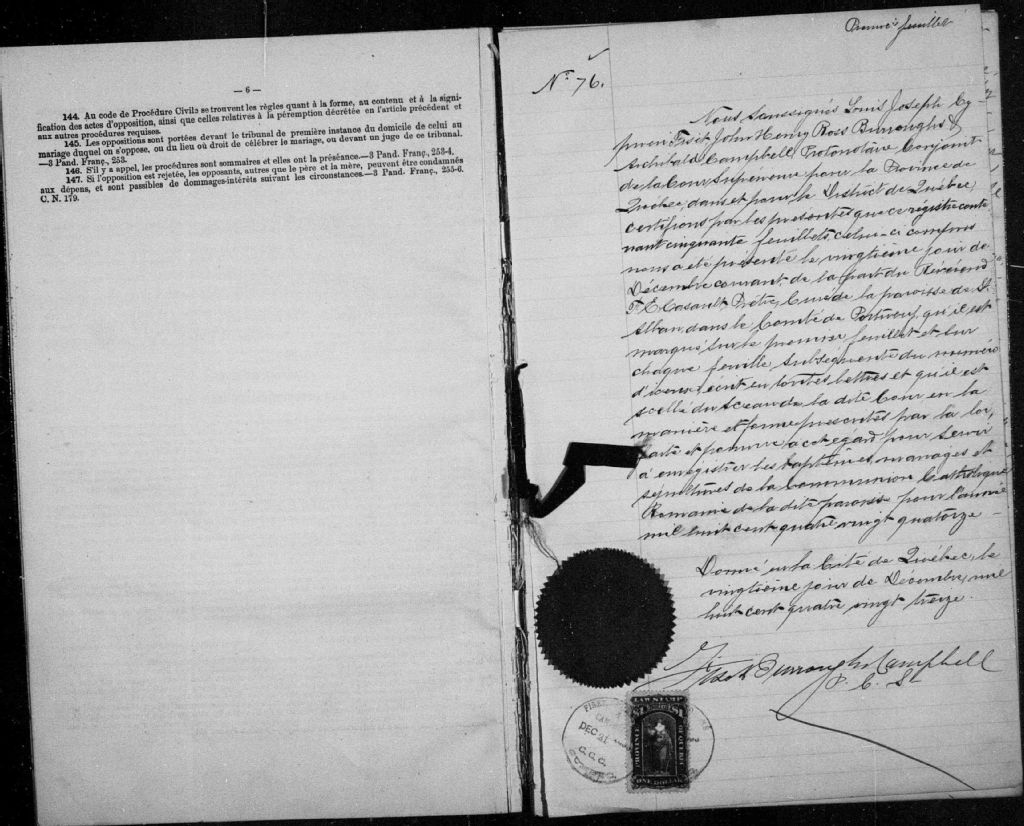 — 6 —
144. Au code de Procédure Civile se trouvent les règles quant à la forme, au contenu et à la signi-
fication des actes d'opposition, ainsi que celles relatives à la péremption décrétée en l'article précédent et
aux autres procédures requises.
145. Les oppositions sont portées devant le tribunal de première instance du domicile de celui au
mariage duquel on s'oppose, ou du lieu où droit de célébrer le mariage, ou devant un juge de ce tribunal.
—3 Pand. Franç., 253.
146. S'il y a appel, les procédures sont sommaires et elles ont la préséance.—3 Pand. Franç., 253-4.
147. Si l'opposition est rejetée, les opposants, autres que le père et la mère, peuvent être condamnés
aux dépens, et sont passibles de dommages-intérêts suivant les circonstances.—3 Pand. Franç., 255-6.
C. N. 179.
Premier feuillet
No. 76.
Nous Soussignés Louis Joseph Cy
prien Fiset John Henry Ross Burroughs &
Archibald Campbell Protonotaire Conjoint
de la Cour Supérieure pour la Province de
Québec, dans et pour le District de Québec,
certifions par les présentes que ce régistre conte
nant cinquante feuillets, celui-ci compris
nous a été présenté le vingtième jour de
Décembre courant, de la part du Révérend
F. E. Casault, Prêtre, Curé de la paroisse de St
Alban, dans le Comté de Portneuf, qu'il est
marqué sur le premier feuillet et sur
chaque feuille subséquente du numéro
d'iceux, écrit en toutes lettres et qu'il est
scellé du sceau de la dite Cour en la
manière et forme prescrites par la loi,
faite et pourvue à cet égard pour servir
à enregistrer les baptêmes, mariages et
sépultures de la Communion Catholique
Romaine de la dite paroisse pour l'année
mil huit cent quatre vingt quatorze —
Donné en la Cité de Québec, le
vingtième jour de Décembre, mil
huit cent quatre vingt treize.
Fiset Burroughs Campbell
P. C. S.
LAW STAMP
$1 $1
PROVINCE OF QUEBEC
ONE DOLLAR
DEC 21
C.C.C.